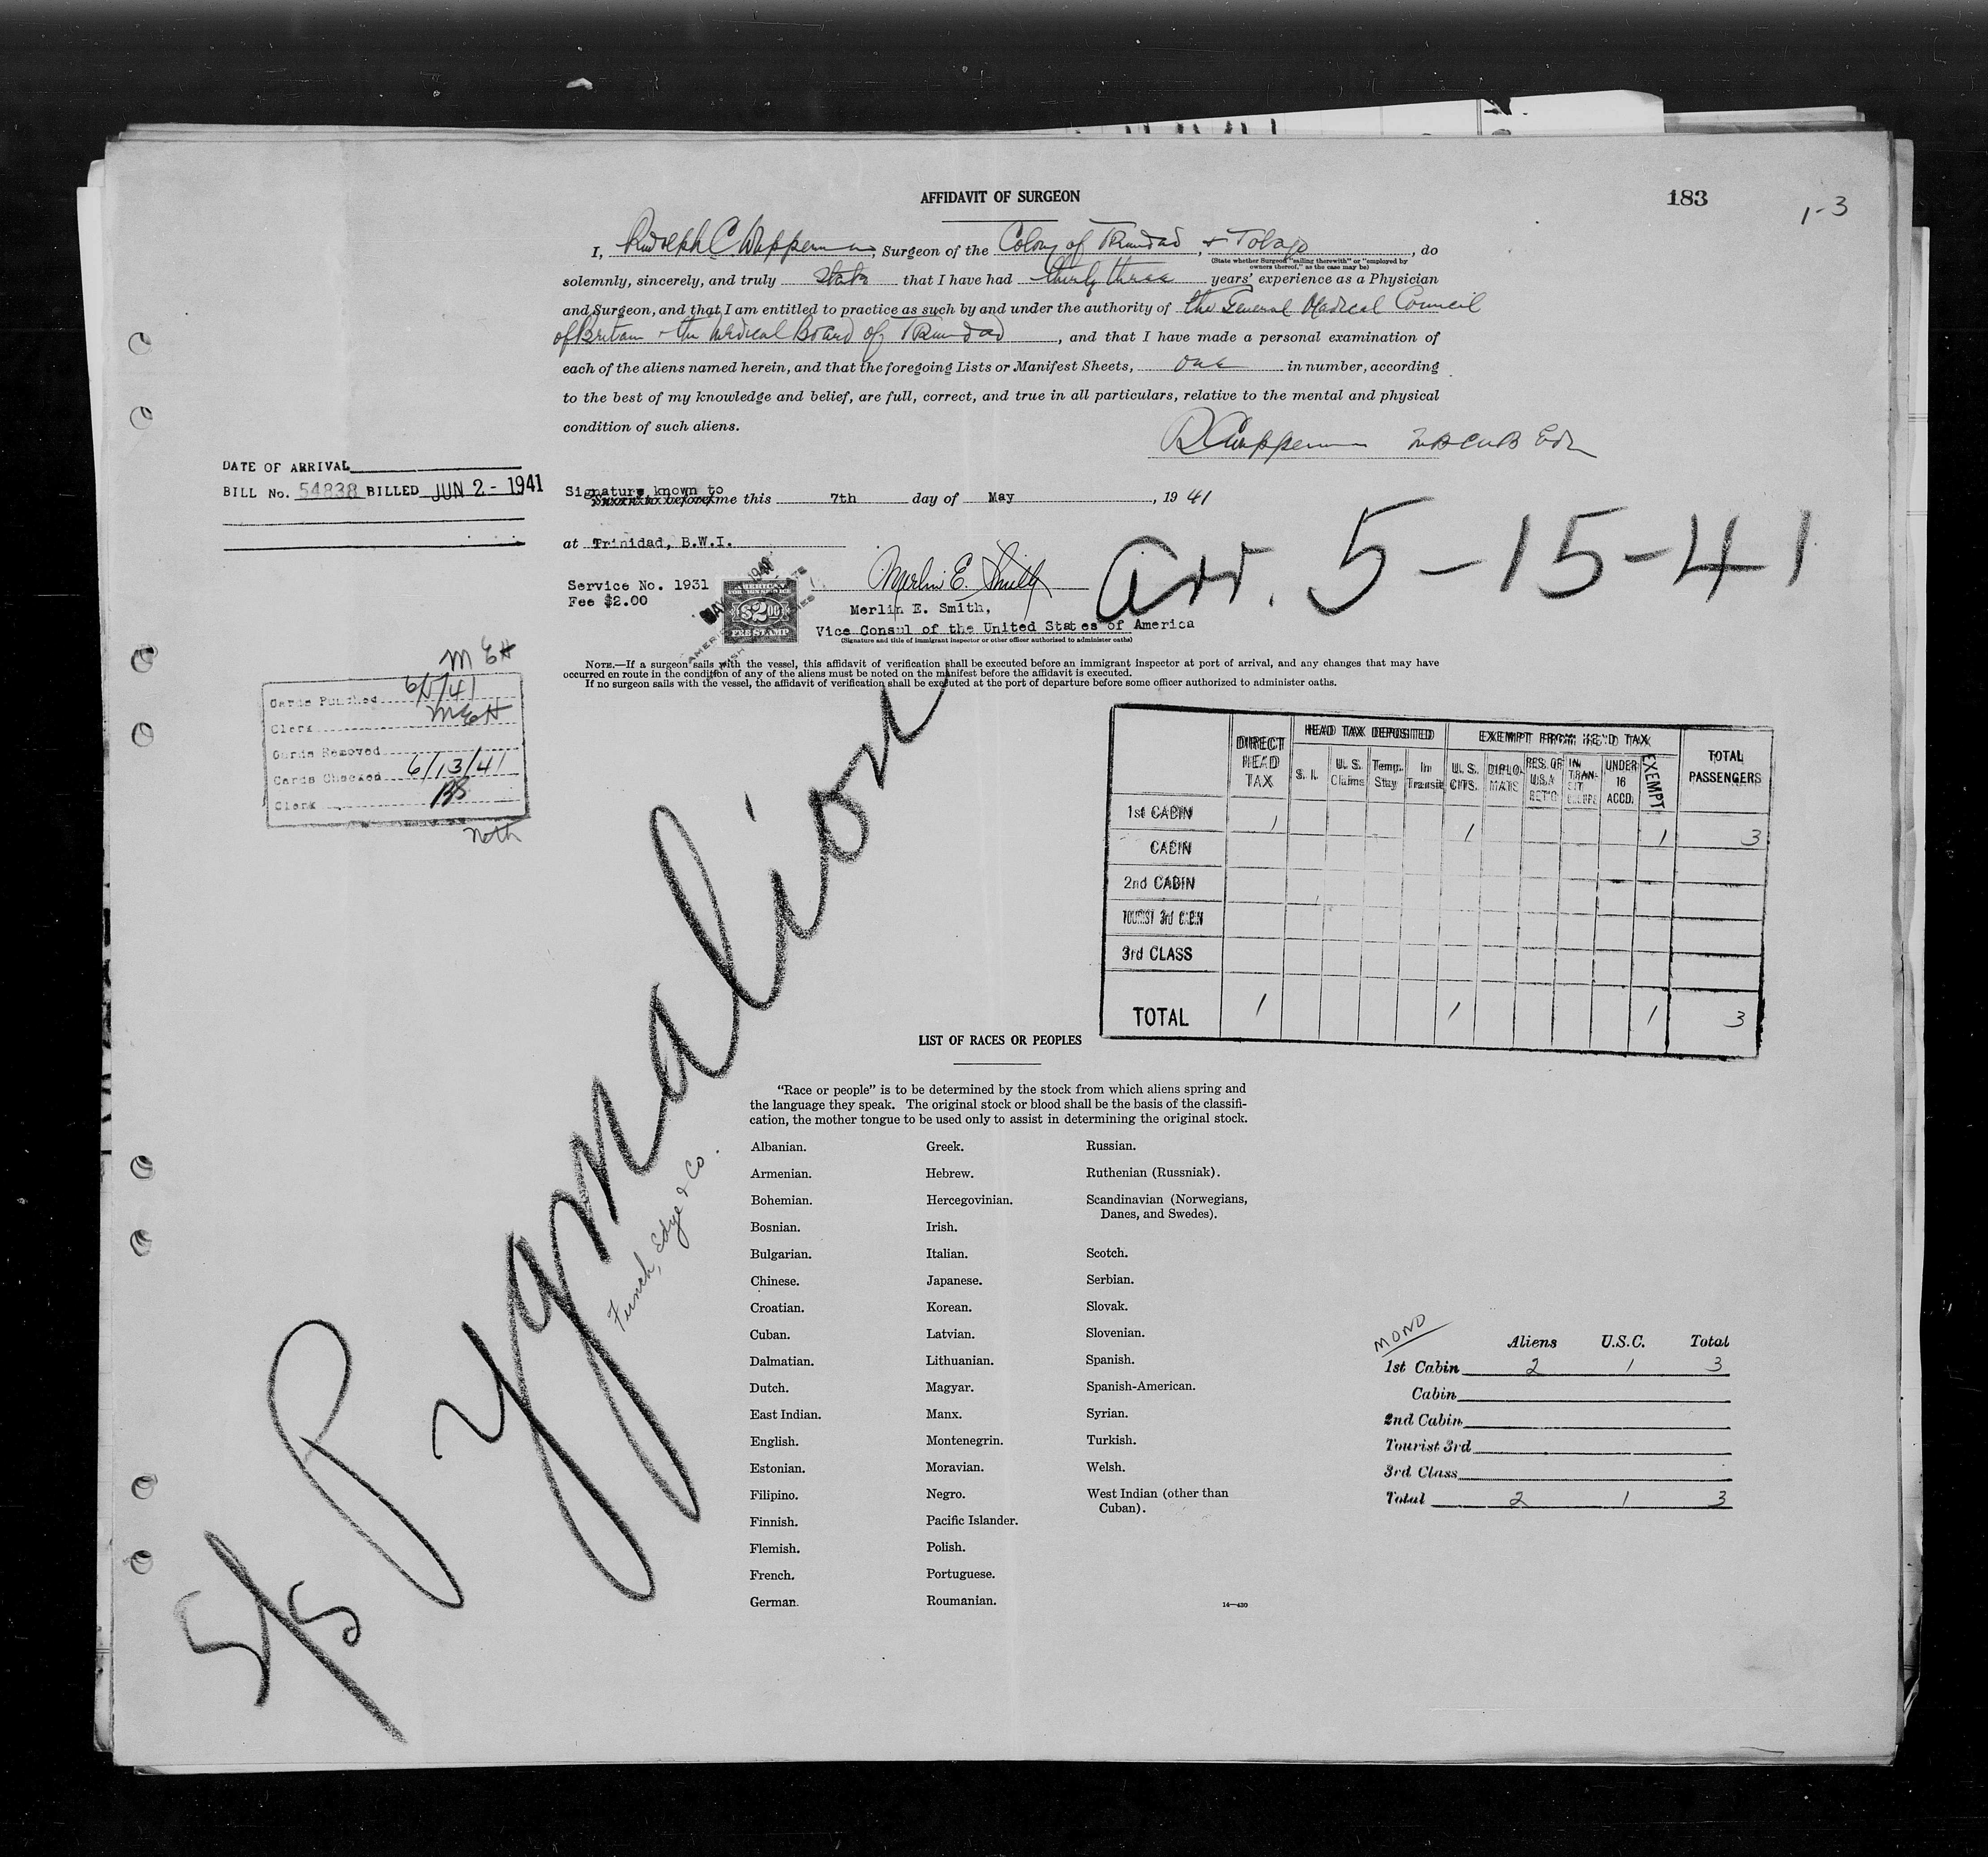 AFFIDAVIT OF SURGEON
183
1-3
I, Rudolph C , Surgeon of the Colony of Trinidad , & Tobago , do
(State whether Surgeon "sailing therewith" or "employed by
owners thereof," as the case may be)
solemnly, sincerely, and truly state that I have had thirty three years' experience as a Physician
and Surgeon, and that I am entitled to practice as such by and under the authority of the General Medical Council
of Britain & the Medical Board of Trinidad , and that I have made a personal examination of
each of the aliens named herein, and that the foregoing Lists or Manifest Sheets, one in number, according
to the best of my knowledge and belief, are full, correct, and true in all particulars, relative to the mental and physical
condition of such aliens.
DATE OF ARRIVAL
BILL No. 54838 BILLED JUN 2 - 1941
Signature known to
Sworn to before me this 7th day of May , 19 41
at Trinidad, B.W.I.
Arr. 5-15-41
Service No. 1931
Fee $2.00
AMERICAN
FOREIGN SERVICE
$2.00
FEE STAMP
Merlin E. Smith
Merlin E. Smith,
Vice Consul of the United States of America
(Signature and title of immigrant inspector or other officer authorized to administer oaths)
NOTE.—If a surgeon sails with the vessel, this affidavit of verification shall be executed before an immigrant inspector at port of arrival, and any changes that may have
occurred en route in the condition of any of the aliens must be noted on the manifest before the affidavit is executed.
If no surgeon sails with the vessel, the affidavit of verification shall be executed at the port of departure before some officer authorized to administer oaths.
MEH
Cards Punched 6/5/41
Clerk MEH
Cards Removed
Cards Checked 6/13/41
Clerk
DIRECT HEAD TAX
HEAD TAX DEPOSITED
EXEMPT FROM HEAD TAX
TOTAL PASSENGERS
S. I. U. S. Claims Temp. Stay In Transit U. S. CITS. DIPLO-MATS RES. OF U.S.A RET'G IN TRAN-SIT UNDER 16 ACCD. EXEMPT
1st CABIN 1 1 1 3
CABIN
2nd CABIN
TOURIST 3rd CABIN
3rd CLASS
TOTAL 1 1 1 3
S/S Pygmalion
Funch, Edye & Co.
LIST OF RACES OR PEOPLES
"Race or people" is to be determined by the stock from which aliens spring and
the language they speak. The original stock or blood shall be the basis of the classifi-
cation, the mother tongue to be used only to assist in determining the original stock.
Albanian.
Armenian.
Bohemian.
Bosnian.
Bulgarian.
Chinese.
Croatian.
Cuban.
Dalmatian.
Dutch.
East Indian.
English.
Estonian.
Filipino.
Finnish.
Flemish.
French.
German.
Greek.
Hebrew.
Hercegovinian.
Irish.
Italian.
Japanese.
Korean.
Latvian.
Lithuanian.
Magyar.
Manx.
Montenegrin.
Moravian.
Negro.
Pacific Islander.
Polish.
Portuguese.
Roumanian.
Russian.
Ruthenian (Russniak).
Scandinavian (Norwegians,
Danes, and Swedes).
Scotch.
Serbian.
Slovak.
Slovenian.
Spanish.
Spanish-American.
Syrian.
Turkish.
Welsh.
West Indian (other than
Cuban).
14—430
MOND
Aliens U.S.C. Total
1st Cabin 2 1 3
Cabin
2nd Cabin
Tourist 3rd
3rd Class
Total 2 1 3